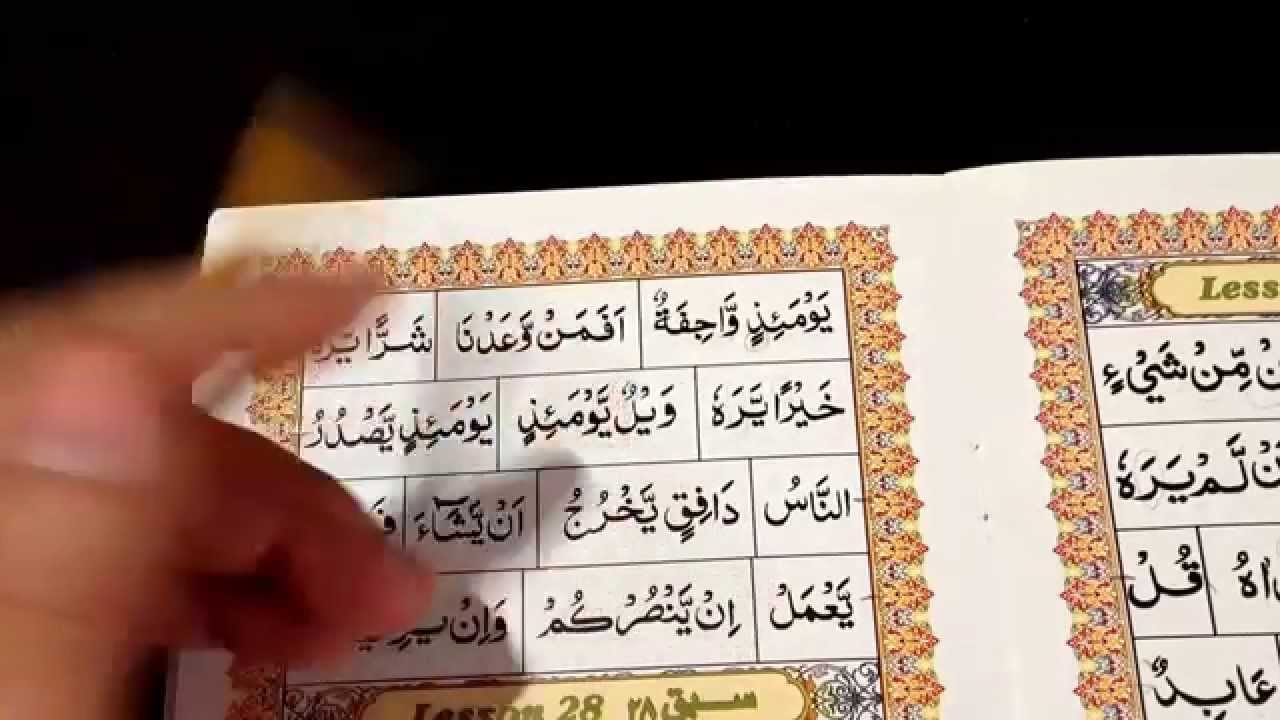 يَوْمَئِذٍ وَّاجِفَةٌ اَفَمَنْ وَّعَدْنَا شَرًّا يَّرَهٗ
خَيْرًا يَّرَهٗ وَيْلٌ يَّوْمَئِذٍ يَوْمَئِذٍ يَّصْدُرُ
النَّاسُ دَافِقٍ يَّخْرُجُ اَنْ يَّشَآءَ
يَّعْمَلْ اِنْ يَّنْصُرْكُمْ وَاِنْ
Lesson 28 سبق ۲۸
مِّنْ شَيْءٍ
لَّمْ يَرَهٗ
قُلْ
عَابِدٌ